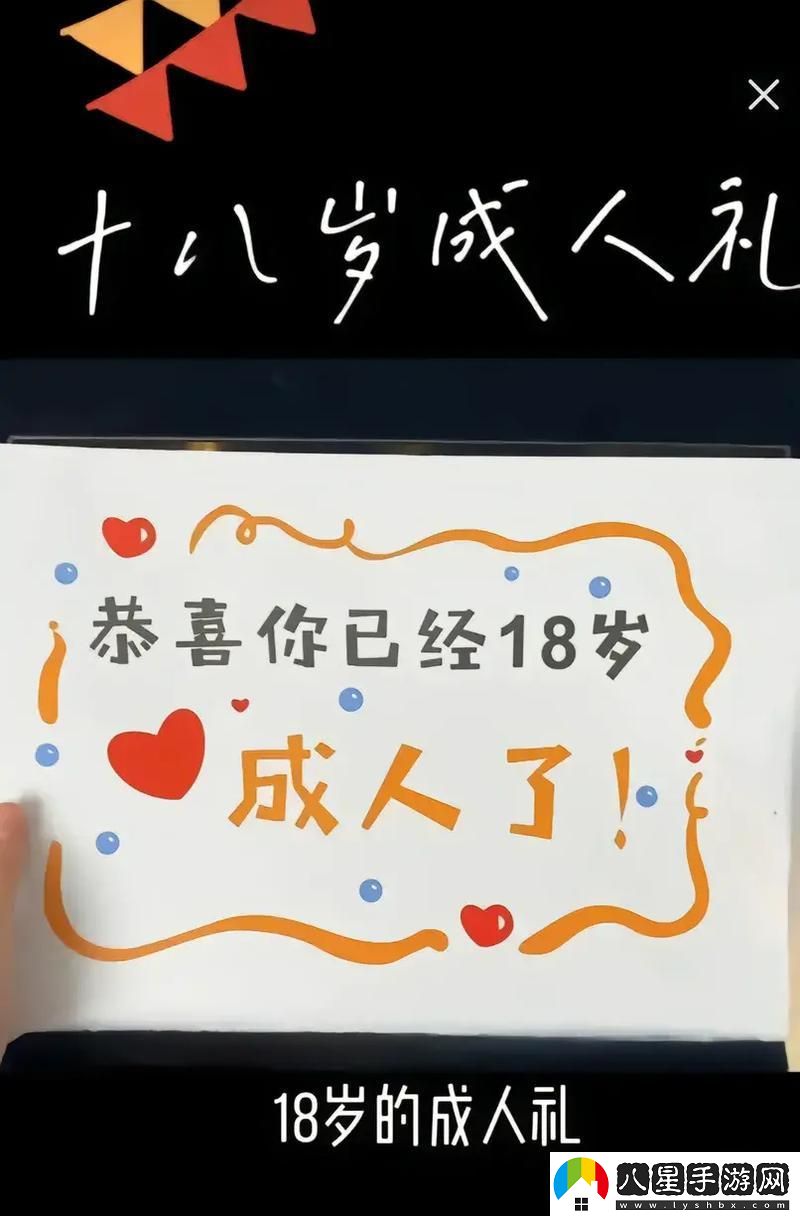 十八岁成人礼
恭喜你已经18岁
成人了!
18岁的成人礼
八星手游网
www.lyshbx.com